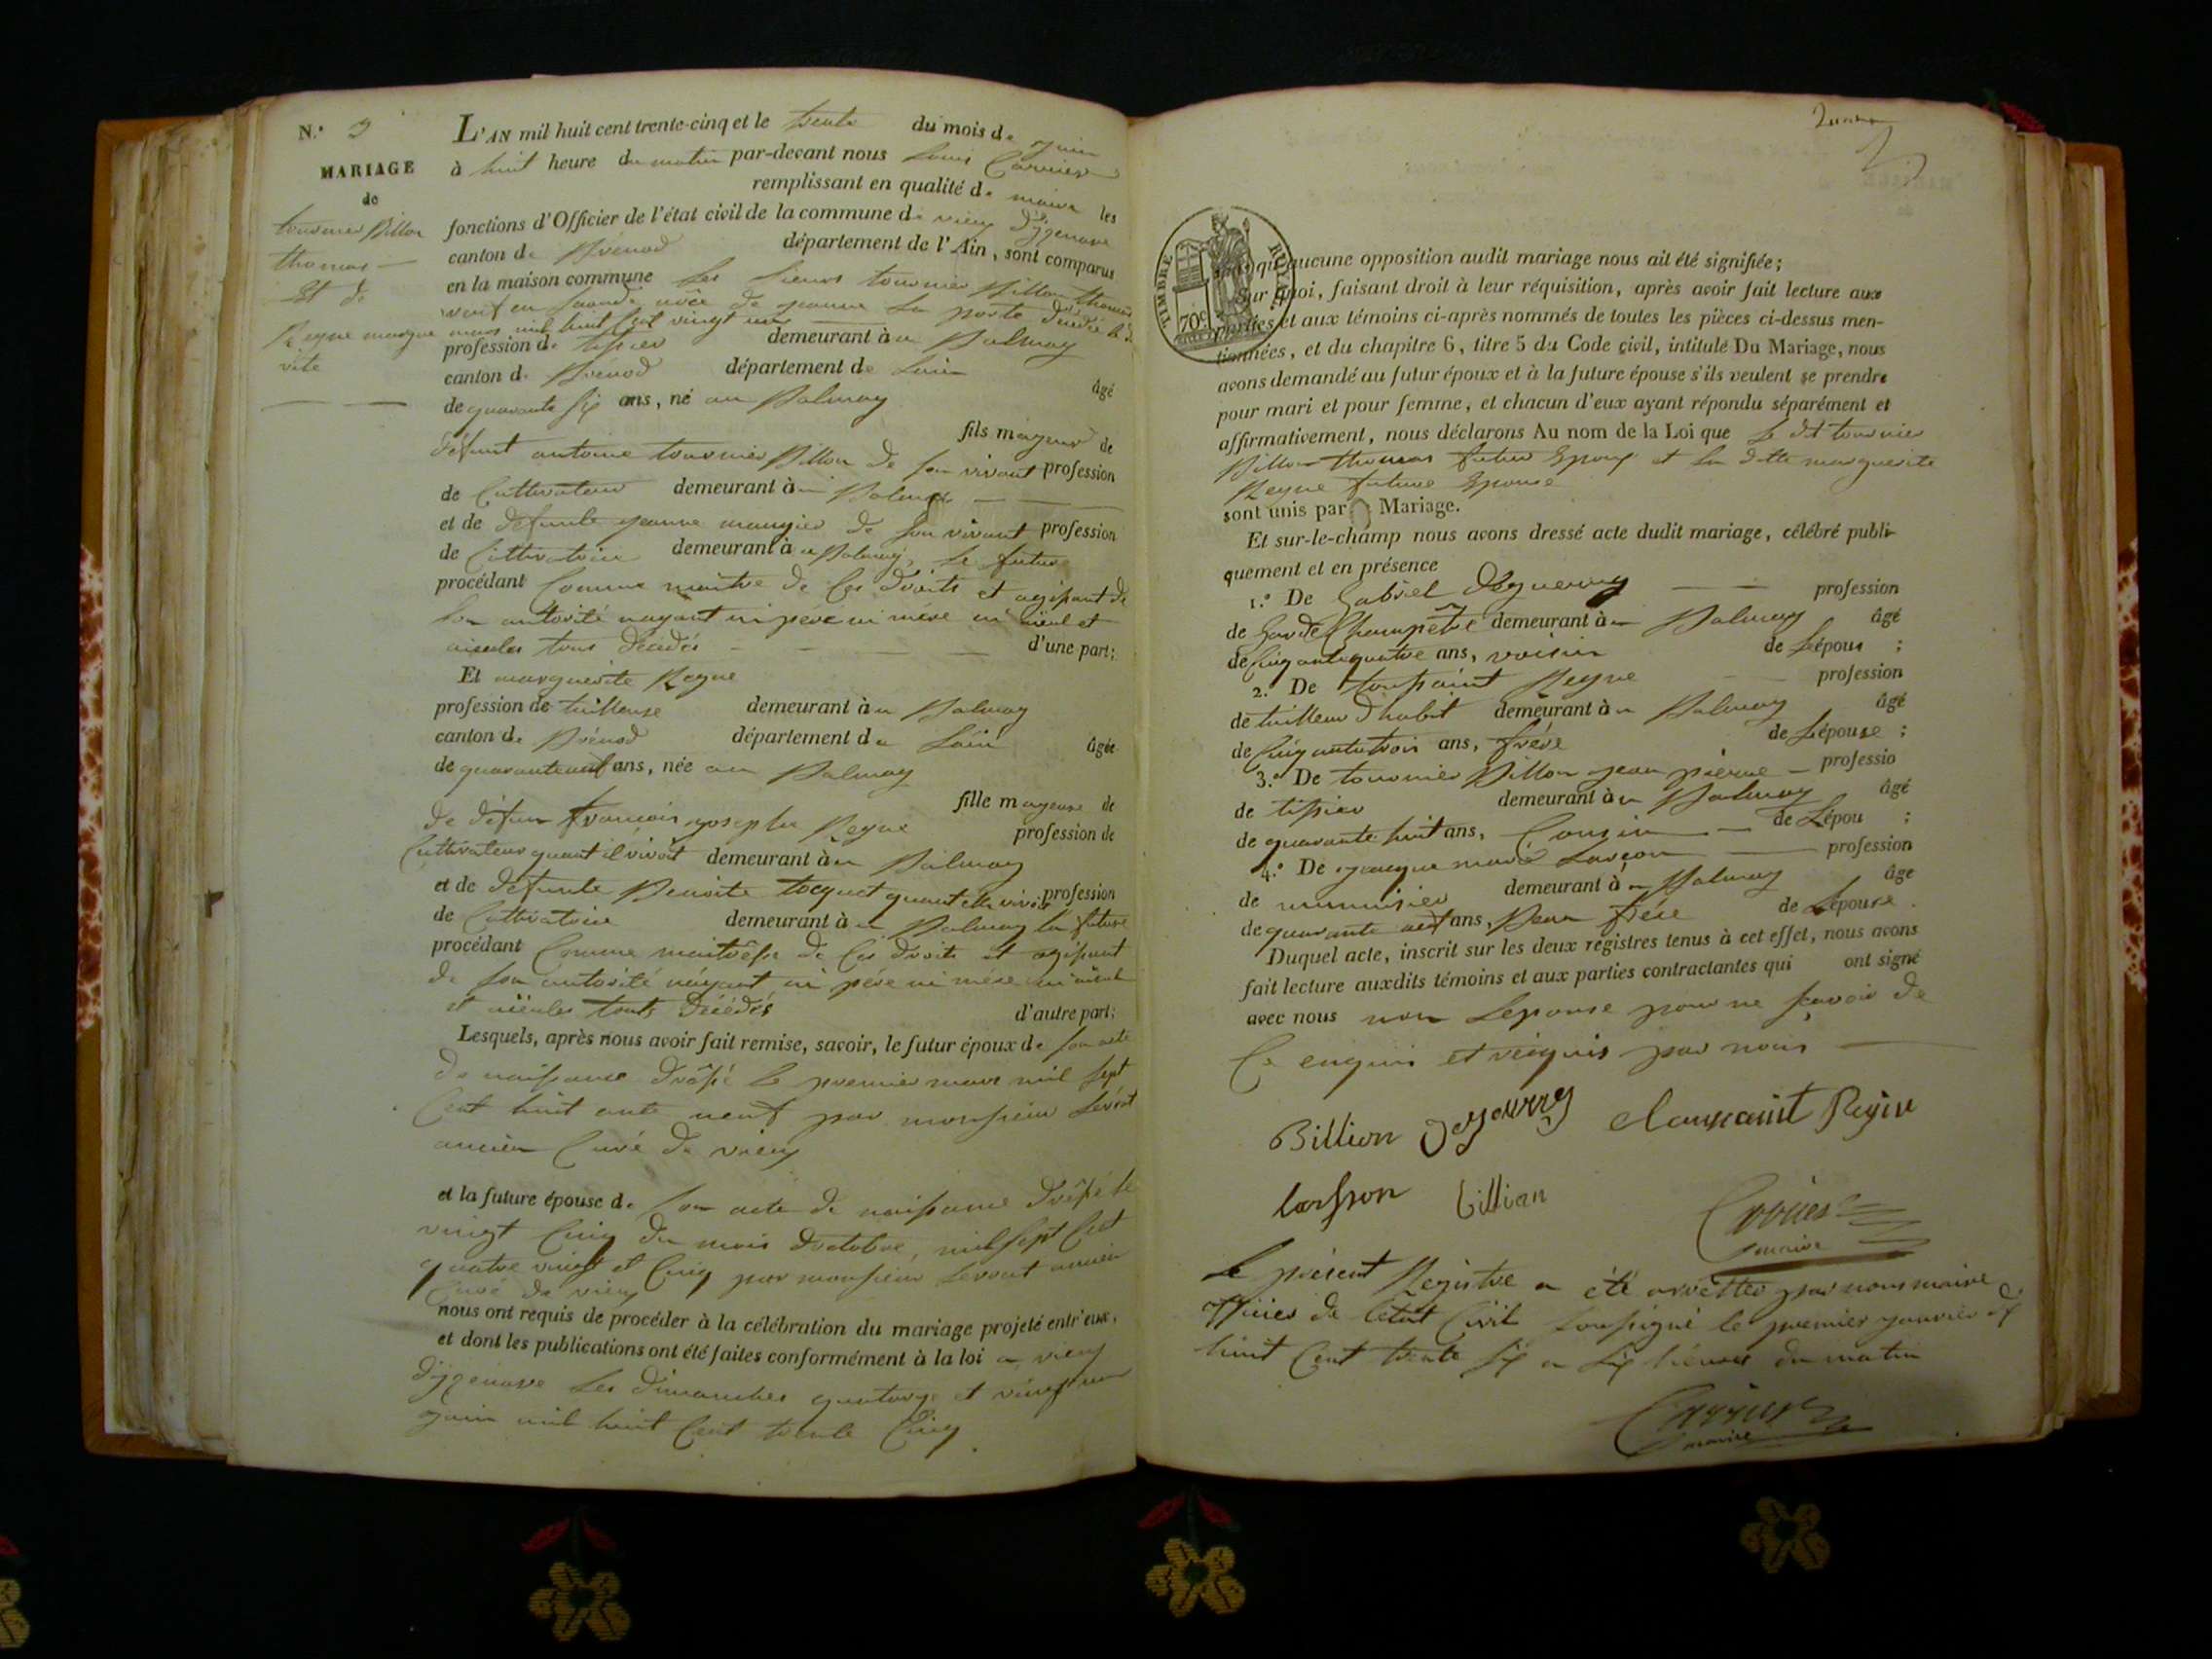 N.º 3
MARIAGE
de
tournier Billon
thomas
Et de
Reyne margue
rite
L'AN mil huit cent trente-cinq et le trente du mois de juin
à huit heure du matin par-devant nous Louis Carrier
remplissant en qualité de maire les
fonctions d'Officier de l'état civil de la commune de vieu Dizenave
canton de Brénod département de l'Ain, sont comparus
en la maison commune Les Sieurs tournier Billon thomas
veuf en seconde noce de jeanne La porte décédée le
mars mil huit cent vingt un
profession de tissier demeurant à u Balmay
canton de Brenod département de Lain âgé
de quarante six ans, né au Balmay
fils mageur de
défunt antoine tournier Billon de son vivant profession
de Cultivateur demeurant à u Balmay
et de défunte jeanne maugier de son vivant profession
de Cultivatrice demeurant à u Balmay, Le future
procédant Comme maitre de Ces droits et agissant de
son autorité nayant ni père ni mère ni aieul et
aieules tous décédés d'une part;
Et marguerite Reyne
profession de tailleuse demeurant à u Balmay
canton de Brénod département de Lain âgée
de quaranteneuf ans, née au Balmay
fille mageure de
de défun francois joseph Reyne profession de
Cultivateur quant il vivoit demeurant à u Balmay
et de défunte Benoite tocquet quant elle vivoit profession
de Cultivatrice demeurant à u Balmay la future
procédant Comme maitresse de Ces droits et agissant
de son autorité nayant ni père ni mère ni aieul
et aieules touts décédés d'autre part;
Lesquels, après nous avoir fait remise, savoir, le futur époux de son acte
de naissance dréssé le premier mars mil sept
Cent huit ante neuf par monsieur Levrat
ancien Curé de vieu
et la future épouse de son acte de naissance dréssé le
vingt Cinq du mois doctobre, mil sept Cent
quatre vingt et Cinq par monsieur Levrat ancien
Curé de vieu
nous ont requis de procéder à la célébration du mariage projeté entr'eux,
et dont les publications ont été faites conformément à la loi a vieu
Dizenave Les dimanches quatorze et vingt un
juin mil huit Cent trente Cinq
TIMBRE ROYAL
70c
sans qu'aucune opposition audit mariage nous ait été signifiée;
Sur quoi, faisant droit à leur réquisition, après avoir fait lecture aux
parties et aux témoins ci-après nommés de toutes les pièces ci-dessus men-
tionnées, et du chapitre 6, titre 5 du Code civil, intitulé Du Mariage, nous
avons demandé au futur époux et à la future épouse s'ils veulent se prendre
pour mari et pour femme, et chacun d'eux ayant répondu séparément et
affirmativement, nous déclarons Au nom de la Loi que Le dit tournier
Billon thomas futur Epoux et La ditte marguerite
Reyne future Epouse
sont unis par Mariage.
Et sur-le-champ nous avons dressé acte dudit mariage, célébré publi-
quement et en présence
1.º De Gabriel profession
de Garde Champêtre demeurant à u Balmay âgé
de Cinquantequatre ans, voisin de Lépoux ;
2.º De toussaint Reyne profession
de tailleur dhabit demeurant à u Balmay âgé
de Cinquantetrois ans, frére de Lépouse ;
3.º De tournier Billon jean pierre professio
de tissier demeurant à u Balmay âgé
de quarante huit ans, Cousin de Lépou ;
4.º De jacque marie profession
de menuisier demeurant à u Balmay âge
de quarante neuf ans, Beau frére de Lépouse.
Duquel acte, inscrit sur les deux registres tenus à cet effet, nous avons
fait lecture auxdits témoins et aux parties contractantes qui ont signé
avec nous non Lepouse pour ne sçavoir de
Ce enquis et réquis par nous
Billion toussaint Reyne
Billian
Carrier
maire
Le présent Registre a été arrétter par nous maire
officier de Létat Civil soussigné le premier janvier
huit Cent trente six a six heures du matin
Carrier
maire